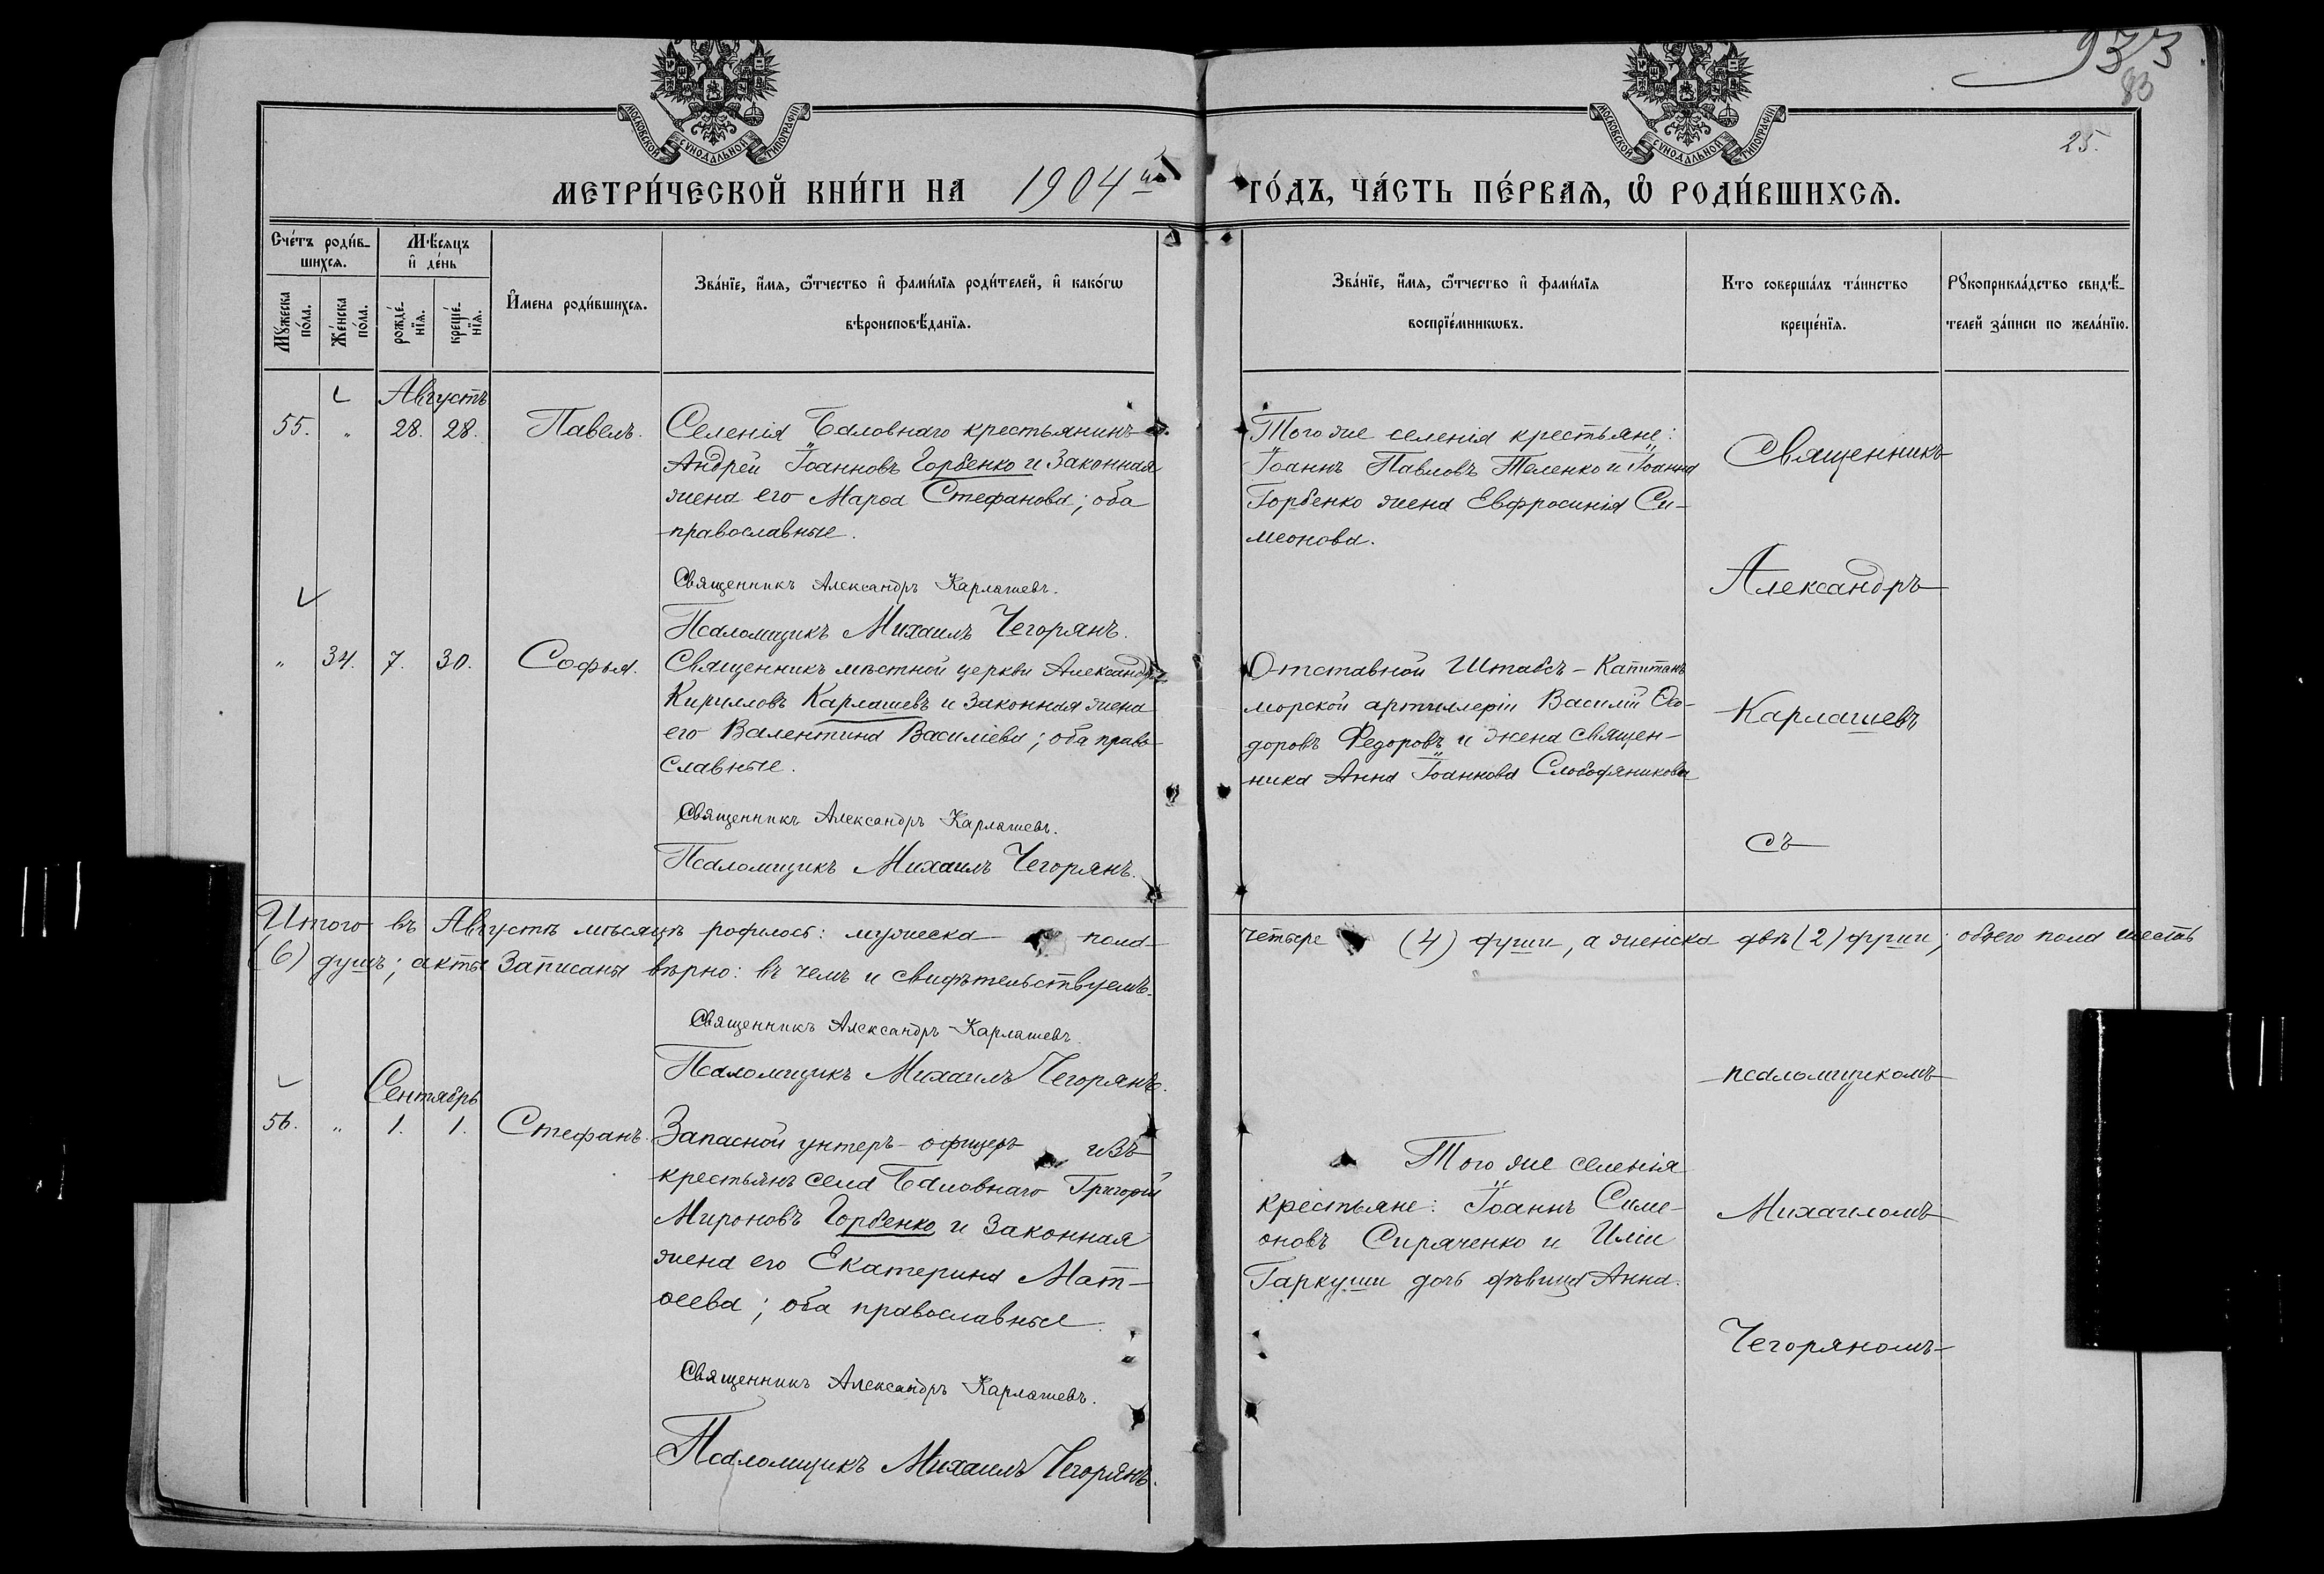 933
83
25.
МОСКОВСКОЙ СѴНОДАЛЬНОЙ ТИПОГРАФІИ
МОСКОВСКОЙ СѴНОДАЛЬНОЙ ТИПОГРАФІИ
МЕТРИ́ЧЕСКОЙ КНИ́ГИ НА 1904й ГО́ДЪ, ЧА́СТЬ ПЕ́РВАѦ, Ѡ҆ РОДИ́ВШИХСѦ.
Сче́тъ роди́в-
шихсѧ.
Мꙋ́жеска по́ла.
Же́нска по́ла.
Мѣ́сѧцъ
и҆ де́нь
рожде́-
нїѧ.
креще́-
нїѧ.
И҆мена роди́вшихсѧ.
Зва́нїе, и҆́мѧ, ѻ҆́тчество и҆ фами́лїѧ роди́телей, и҆ како́гѡ
вѣроисповѣ́данїѧ.
Зва́нїе, и҆́мѧ, ѻ҆́тчество и҆ фами́лїѧ
воспрїе́мникѡвъ.
Кто соверша́лъ та́инство
креще́нїѧ.
Рꙋкоприкла́дство свидѣ́-
телей за́писи по жела́нїю.
Августъ
55. „ 28. 28. Павелъ.
Селенія Баловнаго крестьянинъ
Андрей Іоанновъ Горбенко и законная
жена его Марѳа Стефанова; оба
православные.
Священникъ Александръ Карлашевъ.
Псаломщикъ Михаилъ Чегорянъ.
Того же селенія крестьяне:
Іоаннъ Павловъ Теленко и Іоанна
Горбенко жена Евфросинія Си-
меонова.
„ 34. 7. 30. Софья.
Священникъ мѣстной церкви Александръ
Кирилловъ Карлашевъ и законная жена
его Валентина Василіева; оба право-
славные.
Священникъ Александръ Карлашевъ.
Псаломщикъ Михаилъ Чегорянъ.
Отставной Штабсъ-Капитанъ
морской артиллеріи Василій Ѳео-
доровъ Федоровъ и жена священ-
ника Анна Іоаннова Слободяникова
Итого въ Августѣ мѣсяцѣ родилось: мужеска пола четыре (4) души, а женска двѣ (2) души; обоего пола шесть
(6) душъ; акты записаны вѣрно: въ чемъ и свидѣтельствуемъ.
Священникъ Александръ Карлашевъ.
Псаломщикъ Михаилъ Чегорянъ.
Сентябрь
56. „ 1. 1. Стефанъ.
Запасной унтеръ-офицеръ изъ
крестьянъ села Баловнаго Григорій
Мироновъ Горбенко и законная
жена его Екатерина Мат-
ѳеева; оба православные.
Священникъ Александръ Карлашевъ.
Псаломщикъ Михаилъ Чегорянъ.
Того же селенія
крестьяне: Іоаннъ Симе-
оновъ Сираченко и Иліи
Гаркуши дочь дѣвица Анна.
Священникъ
Александръ
Карлашевъ
съ
псаломщикомъ
Михаиломъ
Чегоряномъ